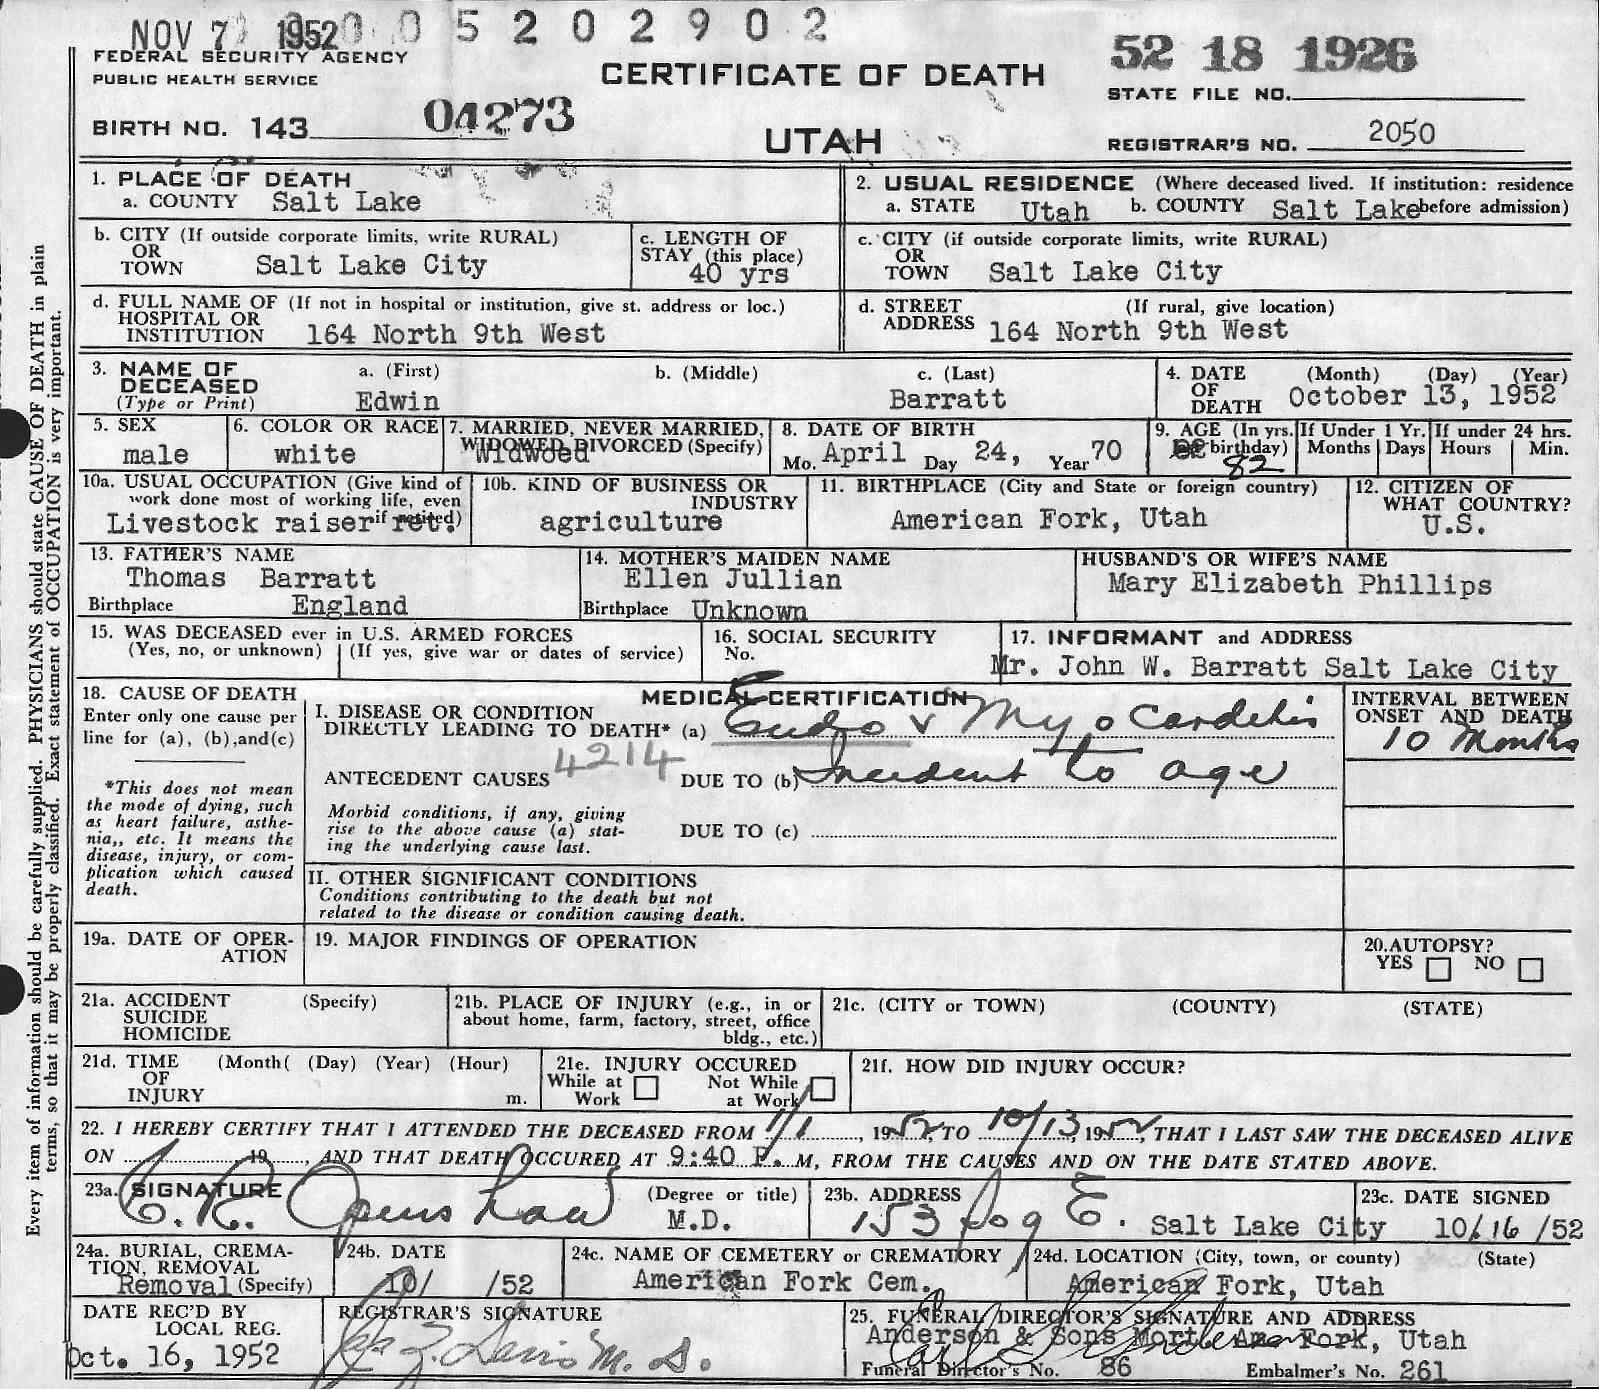 NOV 7 1952 0 0 5 2 0 2 9 0 2
FEDERAL SECURITY AGENCY
PUBLIC HEALTH SERVICE
CERTIFICATE OF DEATH
52 18 1926
STATE FILE NO.
BIRTH NO. 143 04273
UTAH
REGISTRAR'S NO. 2050
1. PLACE OF DEATH
a. COUNTY Salt Lake
2. USUAL RESIDENCE (Where deceased lived. If institution: residence
a. STATE Utah b. COUNTY Salt Lake before admission)
b. CITY (If outside corporate limits, write RURAL)
OR
TOWN Salt Lake City
c. LENGTH OF
STAY (this place)
40 yrs
c. CITY (if outside corporate limits, write RURAL)
OR
TOWN Salt Lake City
d. FULL NAME OF (If not in hospital or institution, give st. address or loc.)
HOSPITAL OR
INSTITUTION 164 North 9th West
d. STREET (If rural, give location)
ADDRESS 164 North 9th West
3. NAME OF
DECEASED
(Type or Print)
a. (First) b. (Middle) c. (Last)
Edwin Barratt
4. DATE (Month) (Day) (Year)
OF
DEATH October 13, 1952
5. SEX
male
6. COLOR OR RACE
white
7. MARRIED, NEVER MARRIED,
WIDOWED, DIVORCED (Specify)
Widwoed
8. DATE OF BIRTH
Mo. April Day 24, Year 70
9. AGE (In yrs.
birthday)
82
If Under 1 Yr.
Months Days
If under 24 hrs.
Hours Min.
10a. USUAL OCCUPATION (Give kind of
work done most of working life, even
if retired)
Livestock raiser ret.
10b. KIND OF BUSINESS OR
INDUSTRY
agriculture
11. BIRTHPLACE (City and State or foreign country)
American Fork, Utah
12. CITIZEN OF
WHAT COUNTRY?
U.S.
13. FATHER'S NAME
Thomas Barratt
Birthplace England
14. MOTHER'S MAIDEN NAME
Ellen Jullian
Birthplace Unknown
HUSBAND'S OR WIFE'S NAME
Mary Elizabeth Phillips
15. WAS DECEASED ever in U.S. ARMED FORCES
(Yes, no, or unknown) (If yes, give war or dates of service)
16. SOCIAL SECURITY
No.
17. INFORMANT and ADDRESS
Mr. John W. Barratt Salt Lake City
18. CAUSE OF DEATH
Enter only one cause per
line for (a), (b),and(c)
*This does not mean
the mode of dying, such
as heart failure, asthe-
nia,, etc. It means the
disease, injury, or com-
plication which caused
death.
MEDICAL CERTIFICATION
I. DISEASE OR CONDITION
DIRECTLY LEADING TO DEATH* (a) Endo & Myocardetis
4214
ANTECEDENT CAUSES DUE TO (b) Incident to age
Morbid conditions, if any, giving
rise to the above cause (a) stat-
ing the underlying cause last.
DUE TO (c)
INTERVAL BETWEEN
ONSET AND DEATH
10 Months
II. OTHER SIGNIFICANT CONDITIONS
Conditions contributing to the death but not
related to the disease or condition causing death.
19a. DATE OF OPER-
ATION
19. MAJOR FINDINGS OF OPERATION
20.AUTOPSY?
YES NO
21a. ACCIDENT (Specify)
SUICIDE
HOMICIDE
21b. PLACE OF INJURY (e.g., in or
about home, farm, factory, street, office
bldg., etc.)
21c. (CITY or TOWN) (COUNTY) (STATE)
21d. TIME (Month( (Day) (Year) (Hour)
OF
INJURY m.
21e. INJURY OCCURED
While at Not While
Work at Work
21f. HOW DID INJURY OCCUR?
22. I HEREBY CERTIFY THAT I ATTENDED THE DECEASED FROM 1/1, 1952, TO 10/13, 1952, THAT I LAST SAW THE DECEASED ALIVE
ON 19 , AND THAT DEATH OCCURED AT 9:40 P. M, FROM THE CAUSES AND ON THE DATE STATED ABOVE.
23a. SIGNATURE (Degree or title)
C. R. Openshaw M.D.
23b. ADDRESS
153 E. Salt Lake City
23c. DATE SIGNED
10/16/52
24a. BURIAL, CREMA-
TION, REMOVAL
Removal (Specify)
24b. DATE
10/ /52
24c. NAME OF CEMETERY or CREMATORY
American Fork Cem.
24d. LOCATION (City, town, or county) (State)
American Fork, Utah
DATE REC'D BY
LOCAL REG.
Oct. 16, 1952
REGISTRAR'S SIGNATURE
M. D.
25. FUNERAL DIRECTOR'S SIGNATURE AND ADDRESS
Anderson & Sons Mort. Am Fork, Utah
Funeral Director's No. 86 Embalmer's No. 261
Every item of information should be carefully supplied. PHYSICIANS should state CAUSE OF DEATH in plain
terms, so that it may be properly classified. Exact statement of OCCUPATION is very important.